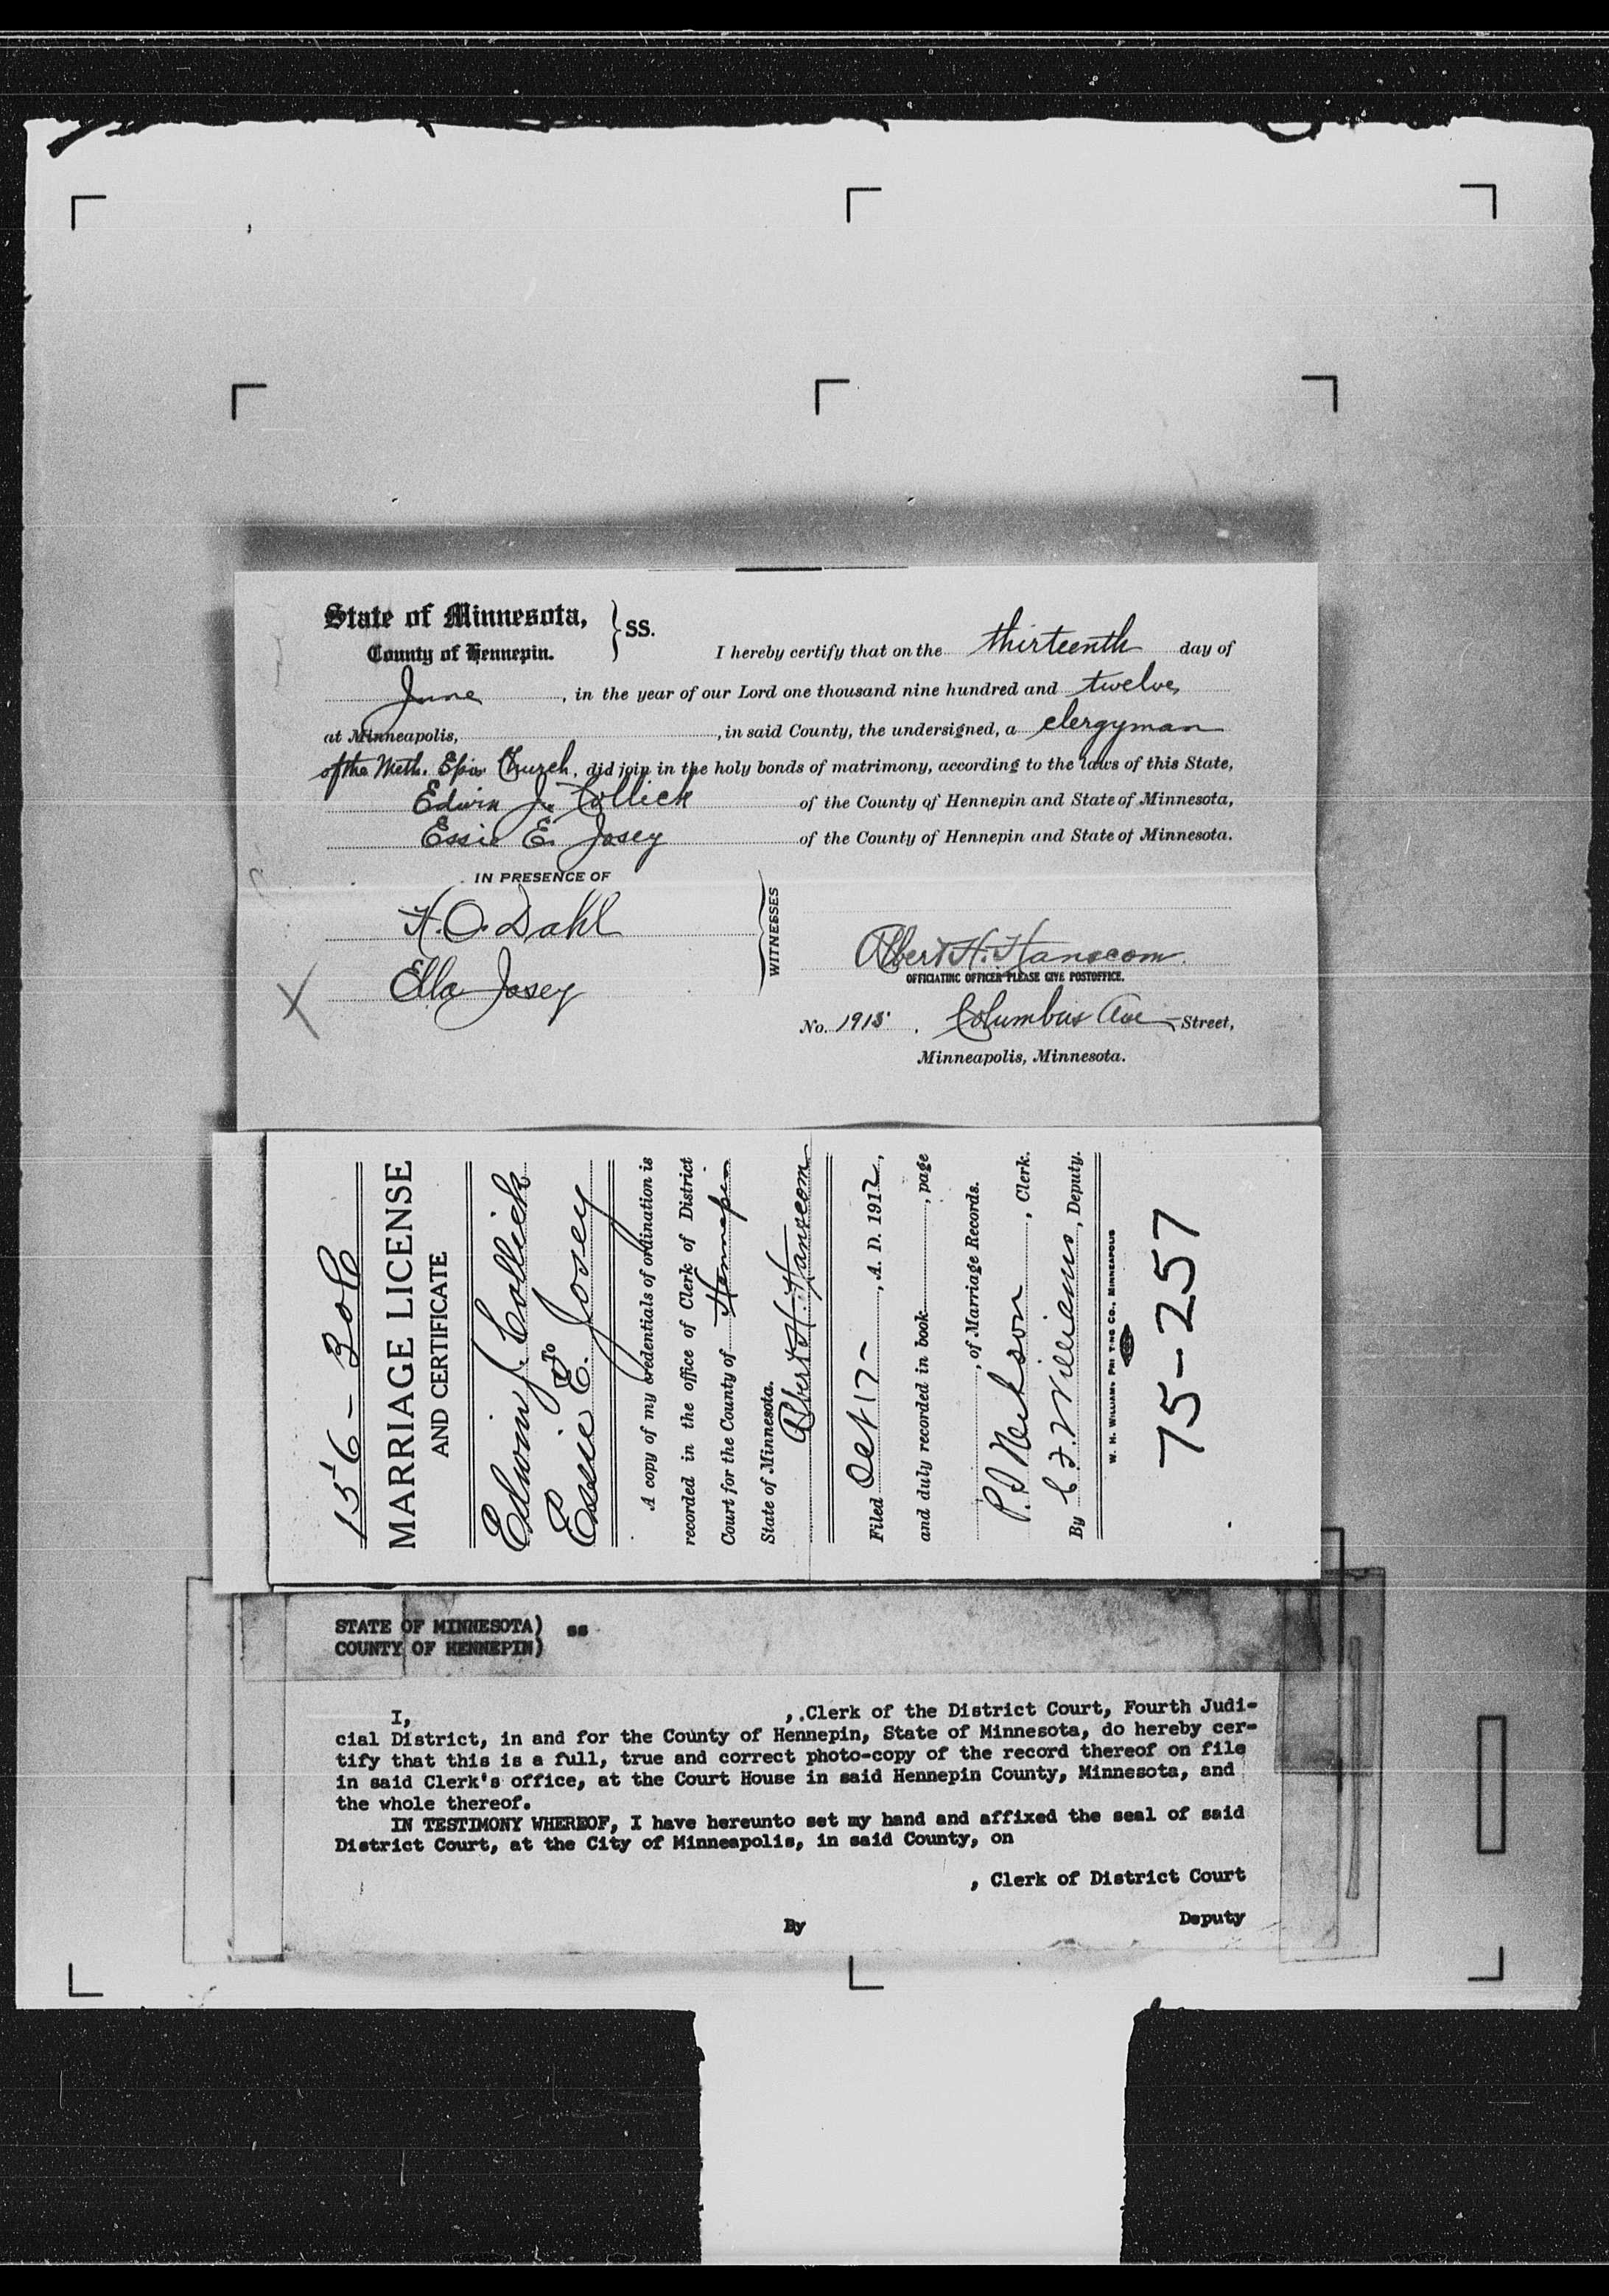 State of Minnesota,
County of Hennepin.
} SS.
I hereby certify that on the thirteenth day of
June, in the year of our Lord one thousand nine hundred and twelve,
at Minneapolis, , in said County, the undersigned, a clergyman
of the Meth. Epis. Church, did join in the holy bonds of matrimony, according to the laws of this State,
Edwin J. Collick of the County of Hennepin and State of Minnesota,
Essie E. Josey of the County of Hennepin and State of Minnesota.
IN PRESENCE OF
H. O. Dahl
Ella Josey
WITNESSES
Albert H. Hanscom.
OFFICIATING OFFICER PLEASE GIVE POSTOFFICE.
No. 1915 . Columbus Ave Street,
Minneapolis, Minnesota.
X
156 –
MARRIAGE LICENSE
AND CERTIFICATE
Edwin J. Collick
TO
Essie E. Josey
A copy of my credentials of ordination is
recorded in the office of Clerk of District
Court for the County of Hennepin
State of Minnesota.
Albert H. Hanscom
Filed Oct 17 – , A. D. 1912,
and duly recorded in book , page
, of Marriage Records.
P. S. Neilson , Clerk.
By C. F. Williams , Deputy.
W. H. WILLIAMS PRINTING CO., MINNEAPOLIS
75-257
STATE OF MINNESOTA) ss
COUNTY OF HENNEPIN)
I, ,.Clerk of the District Court, Fourth Judi-
cial District, in and for the County of Hennepin, State of Minnesota, do hereby cer-
tify that this is a full, true and correct photo-copy of the record thereof on file
in said Clerk's office, at the Court House in said Hennepin County, Minnesota, and
the whole thereof.
IN TESTIMONY WHEREOF, I have hereunto set my hand and affixed the seal of said
District Court, at the City of Minneapolis, in said County, on
, Clerk of District Court
By Deputy